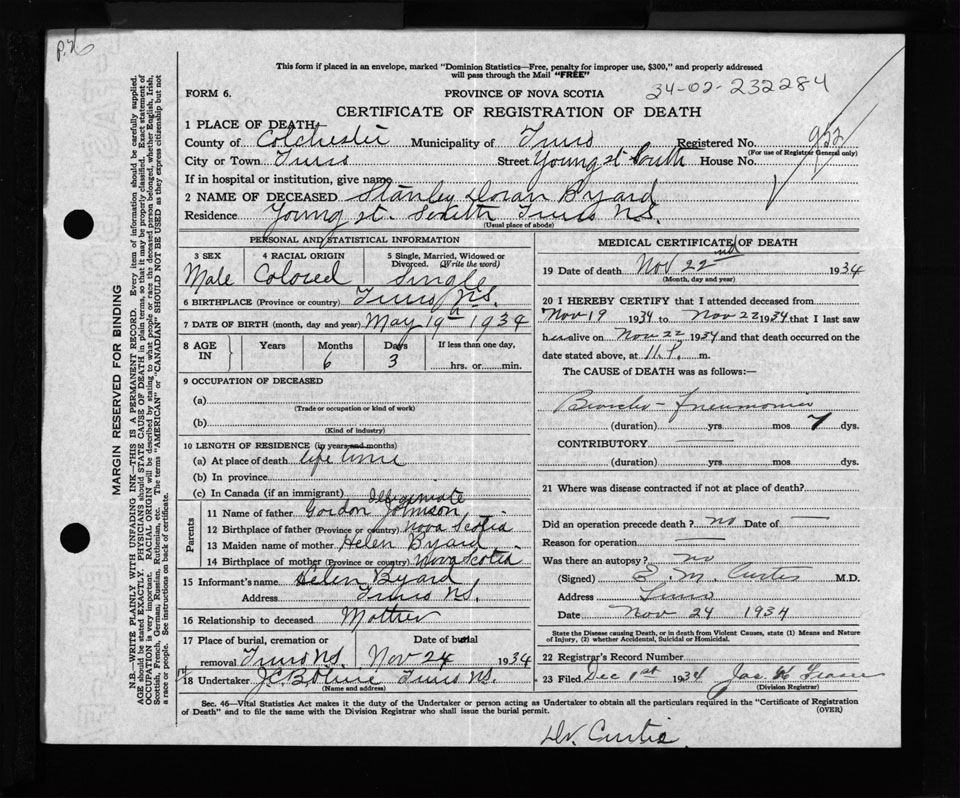 P.76
This form if placed in an envelope, marked "Dominion Statistics—Free, penalty for improper use, $300," and properly addressed
will pass through the Mail "FREE"
34-02-232284
FORM 6.
PROVINCE OF NOVA SCOTIA
CERTIFICATE OF REGISTRATION OF DEATH
1 PLACE OF DEATH
County of Colchester Municipality of Truro Registered No. 953
(For use of Registrar General only)
City or Town Truro Street Young st South House No.
If in hospital or institution, give name
2 NAME OF DECEASED Stanley Doran Byard
Residence Young st. South Truro N.S.
(Usual place of abode)
PERSONAL AND STATISTICAL INFORMATION
3 SEX 4 RACIAL ORIGIN 5 Single, Married, Widowed or
Divorced. (Write the word)
Male Colored Single
6 BIRTHPLACE (Province or country) Truro N.S.
7 DATE OF BIRTH (month, day and year) May 19th 1934
8 AGE IN Years Months Days If less than one day,
6 3 hrs. or min.
9 OCCUPATION OF DECEASED
(a)
(Trade or occupation or kind of work)
(b)
(Kind of industry)
10 LENGTH OF RESIDENCE (in years and months)
(a) At place of death life time
(b) In province
(c) In Canada (if an immigrant)
Illegimiate
Parents
11 Name of father Gordon Johnson
12 Birthplace of father (Province or country) Nova Scotia
13 Maiden name of mother Helen Byard
14 Birthplace of mother (Province or country) Nova Scotia
15 Informant's name Helen Byard
Address Truro N.S.
16 Relationship to deceased Mother
17 Place of burial, cremation or Date of burial
removal Truro N.S. Nov 24 1934
18 Undertaker J.C.B. Olive Truro N.S.
(Name and address)
MEDICAL CERTIFICATE OF DEATH
19 Date of death Nov 22nd 1934
(Month, day and year)
20 I HEREBY CERTIFY that I attended deceased from
Nov 19 1934 to Nov 22 1934 that I last saw
h alive on Nov 22 1934 and that death occurred on the
date stated above, at 11 P. m.
The CAUSE of DEATH was as follows:—
Broncho-Pneumonia
(duration) yrs. mos. 7 dys.
CONTRIBUTORY
(duration) yrs. mos. dys.
21 Where was disease contracted if not at place of death?
Did an operation precede death? no Date of
Reason for operation
Was there an autopsy? no
(Signed) E. M. Curtis M.D.
Address Truro
Date Nov 24 1934
State the Disease causing Death, or in death from Violent Causes, state (1) Means and Nature
of Injury, (2) whether Accidental, Suicidal or Homicidal.
22 Registrar's Record Number
23 Filed Dec 1st 1934 Jas. W Fraser
(Division Registrar)
Sec. 46—Vital Statistics Act makes it the duty of the Undertaker or person acting as Undertaker to obtain all the particulars required in the "Certificate of Registration
of Death" and to file the same with the Division Registrar who shall issue the burial permit. (OVER)
Dr. Curtis.
MARGIN RESERVED FOR BINDING
N.B.—WRITE PLAINLY WITH UNFADING INK—THIS IS A PERMANENT RECORD. Every item of information should be carefully supplied.
AGE should be stated EXACTLY. PHYSICIANS should STATE CAUSE OF DEATH in plain terms, so that it may be properly classified. Exact statement of
OCCUPATION is very important. RACIAL ORIGIN will be described by stating to what people or race the deceased person belonged, whether English, Irish,
Scottish, French, German, Russian, Ruthenian, etc. The terms "AMERICAN" or "CANADIAN" SHOULD NOT BE USED as they express citizenship but not
a race or people. See instructions on back of certificate.